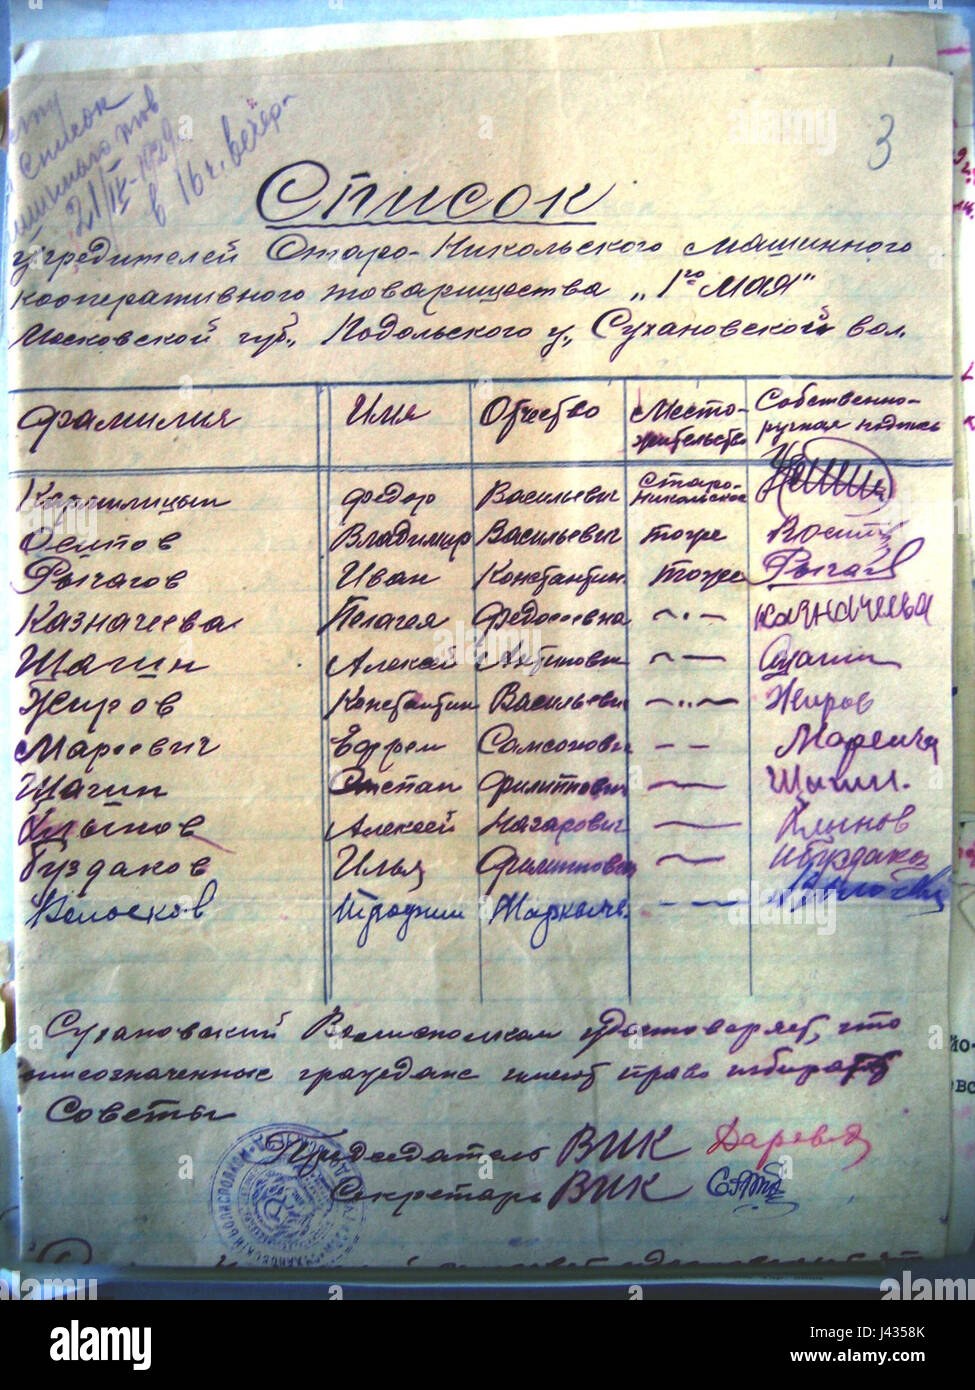 Список
21/IV-1929г.
в 16 ч. вечер.
3
Список
учредителей Старо-Никольского Машинного
кооперативного товарищества „1го мая"
Московской губ., Подольского у., Сухановской вол.
Фамилия Имя Отчество Место- Собственно-
жительство ручная подпись
Кормилицын Федор Васильевич Старо-
Никольское
Осипов Владимир Васильевич тоже
Рычагов Иван Константин. тоже Рычагов
Казначеева Пелагея Федосеевна ~·~ Казначеева
Шагин Алексей Антипович ~ — Шагин
Жиров Константин Васильевич ~··~ Жиров
Мареевич Ефрем Самсонович — —
Шагин Степан Филиппович ~— Шагин.
Клынов Алексей Назарович —— Клынов
Буздаков Илья Филиппович ~— Буздаков
Трофим Маркыч. - —
Сухановский Волисполком удостоверяет, что
вышеозначенные граждане имеют право избирать
Советы
Председатель ВИК
Секретарь ВИК
alamy
J4358K
www.alamy.com